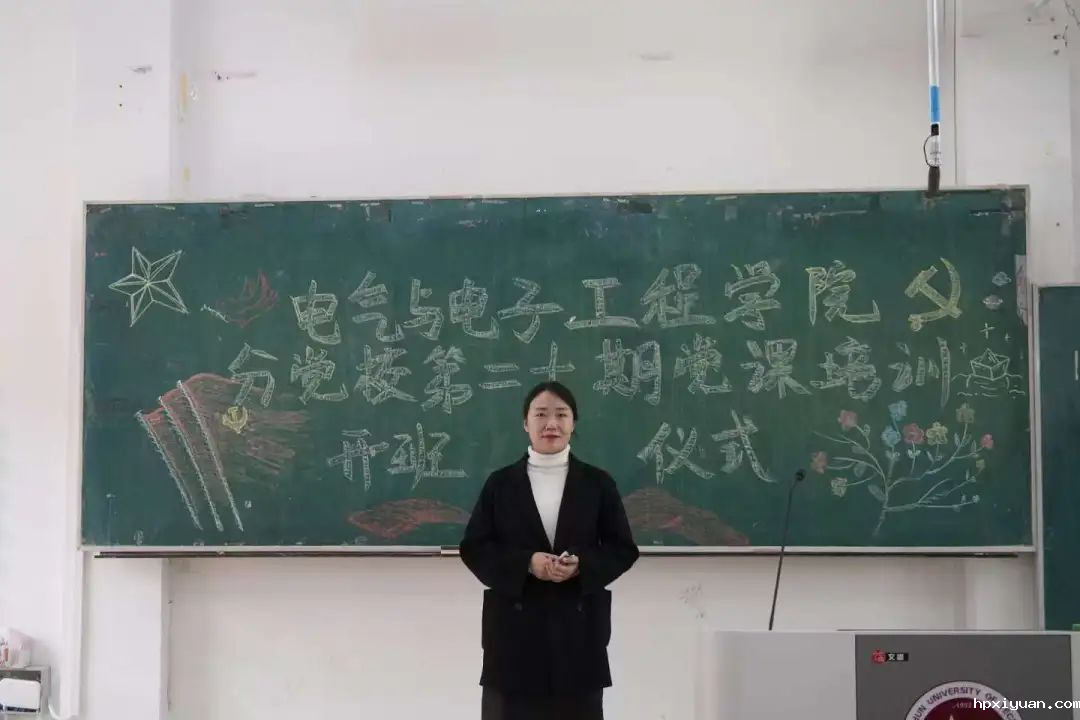 电气与电子工程学院
分党校第二十期党课培训
开班 仪式
文香
UN UNIVERSITY OF TEC
hpxiyuan.com